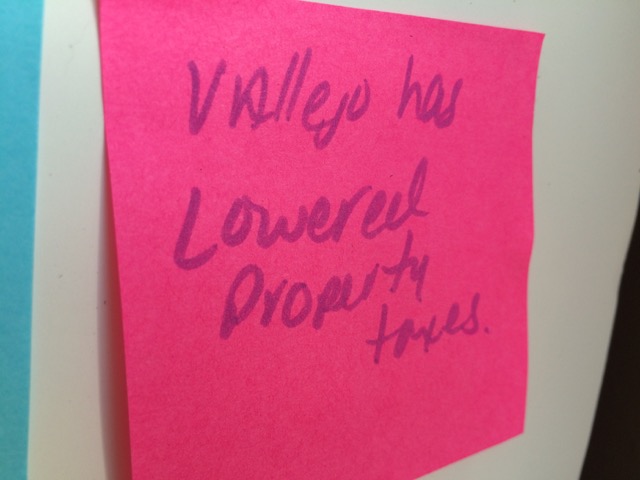 Vallejo has
Lowered
Property
taxes.